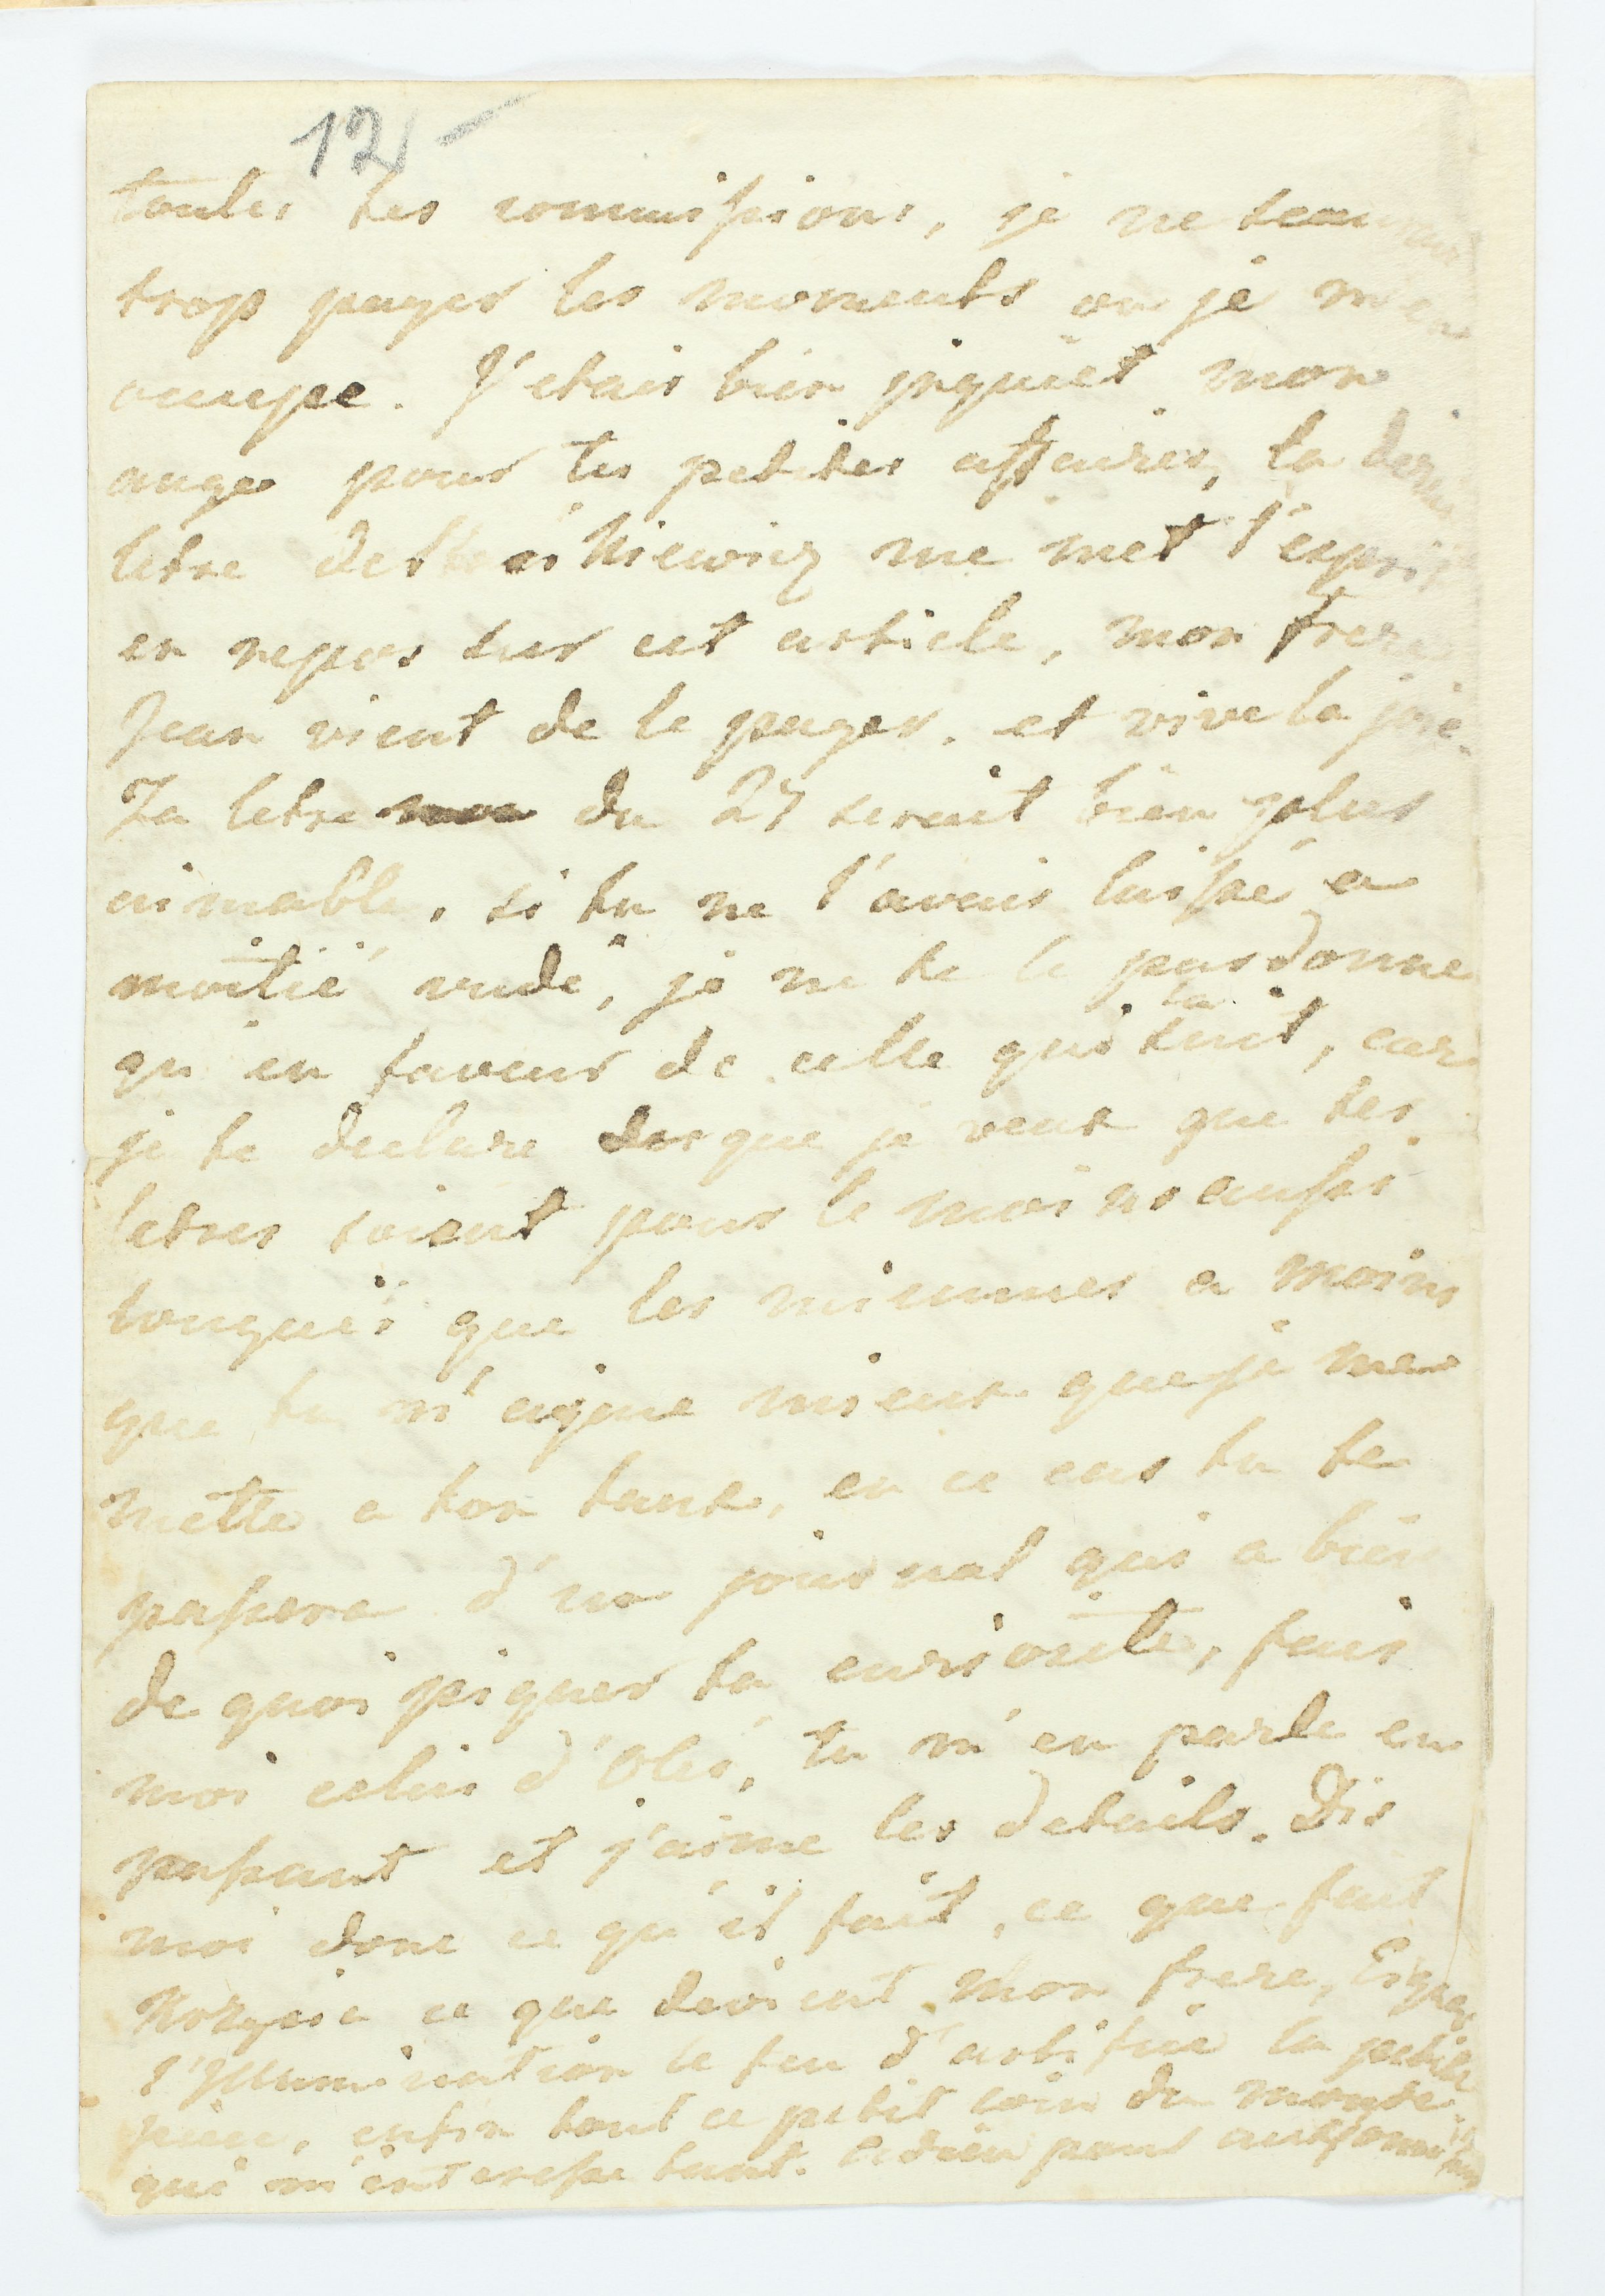 12
toutes tes commissions, je ne
trop payer les moments ou je m'en
occupe. J'etais bien inquiet mon
ange pour tes petites affaires, la
letre de me met l'esprit
en repos sur cet article, mon frere
Jean vient de le payer. et vive la joie.
Ta letre du 27 seroit bien plus
aimable, si tu ne l'avais laissé a
moitié vide, je ne te le pardonne
qu'en faveur de celle qui la suit, car
je te declare des que je veux que tes
letres soient pour le moins aussi
longues que les miennes a moins
que tu n'aime mieux que je me
mette a ton taux, en ce cas tu te
passera d'un journal qui a bien
de quoi piquer ta curiosite, fais
moi celui d'Oles, tu m'en parle en
passant et j'aime les details. Dis
moi donc ce qu'il fait, ce que fait
ce que devient mon frere,
l'Illumination le feu d'artifice la petite
piece, enfin tout ce petit coin du monde
qui m'interesse tant. adieu pour